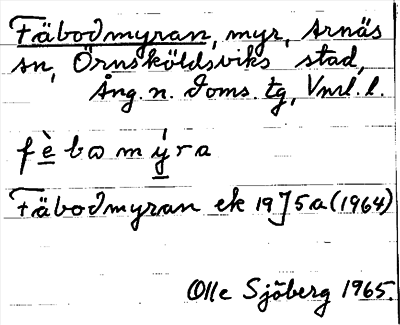 Fäbodmyran, myr, Arnäs
sn, Örnsköldsviks stad,
Ång. n. doms. tg, Vnrl. l.
fèbɷmýra
Fäbodmyran ek 19J5a (1964)
Olle Sjöberg 1965.